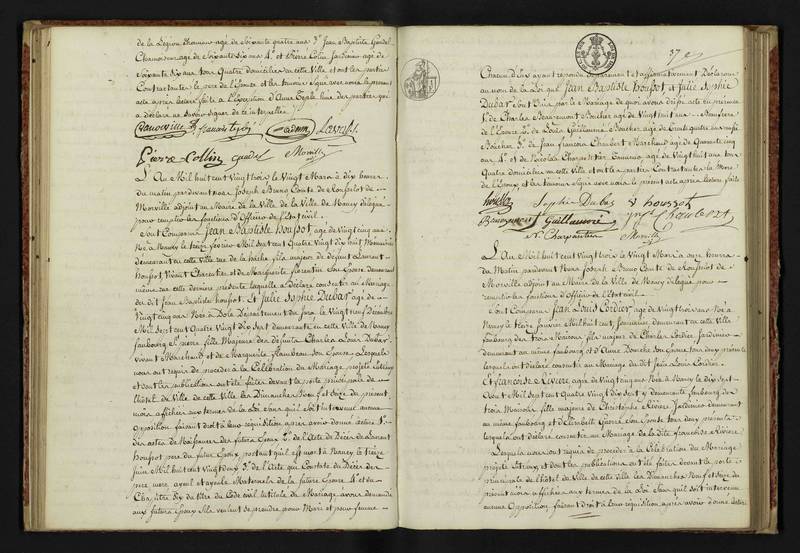 de la Légion d'honneur agé de Soixante quatre ans 3.º Jean Baptiste Gondel
Chamoiseur agé de Soixante dix ans 4.º et Pierre Colin Jardinier agé de
Soixante dix ans tous Quatre domiciliés en cette Ville et ont les parties
Contractantes le pere de l'Epouse et les temoins signé avec nous le present
acte après lecture faite à l'Exception d'Anne l'une des parties qui
a déclaré ne savoir signer de ce interpellée
Pierre Collin Morville
L'An Mil huit cent Vingt trois le Vingt Mars à dix heures
du matin pardevant nous Joseph Bruno Comte de
Morville adjoint au Maire de la Ville de la Ville de Nancy délégué
pour remplir les fonctions d'Officier de l'Etat civil.
Sont Comparus Jean Baptiste houssot, agé de vingt cinq ans
Né à Nancy le treize février Mil Sept cent Quatre Vingt dix huit Menuisier
demeurant en cette Ville rue de la hache fils majeur de défunt Laurent
houssot Vivant Charretier et de Marguerite florentin Son Epouse demeurant
même rue cette dernière présente laquelle a déclaré consentir au Mariage
du dit Jean Baptiste houssot, Et Julie Sophie Dubar agée de
Vingt cinq ans Née à Dole Département du Jura, le Vingt neuf Décembre
Mil Sept cent Quatre Vingt dix Sept demeurant en cette Ville de Nancy
faubourg St. pierre fille Majeure des défunts Charles Louis Dubar
vivant Marchand et de Marguerite flambeau Son Epouse Lesquels
nous ont requis de procéder à la Célébration du Mariage projeté entr'eux
et dont les publications ont été faites devant la porte principale de
l'hôtel de Ville de cette Ville les Dimanches Neuf et Seize du présent
mois affichées aux termes de la Loi Sans qu'il Soit intervenu aucune
opposition faisant droit à leur réquisition après avoir donné lecture 1.º
des actes de Naissances des futurs Epoux 2.º de l'Acte de Décès de Laurent
houssot pere du futur Epoux portant qu'il est mort à Nancy le treize
Juin Mil huit cent Vingt deux 3.º de l'Acte qui Constate le Décès des
pere mere ayeul et ayeule Maternels de la future Epouse 4.º et du
Chapitre Six du titre du Code civil intitulé du Mariage avons demandé
aux futurs Epoux S'ils veulent se prendre pour Mari et pour femme
37
Chacun d'Eux ayant répondu Séparément et affirmativement Déclarons
au nom de la Loi que Jean Baptiste houssot et Julie Sophie
Dubar Sont Unis par le Mariage de quoi avons dressé acte en présence
1.º de Charles Boucher agé de Vingt huit ans
de l'Epouse 2.º de Louis Guillaumé Boucher agé de trente quatre ans
Boucher 3.º de Jean François Chambert Marchand agé de Quarante cinq
ans 4.º et de Nicolas Charpentier Tonneau agé de Vingt huit ans tous
Quatre domiciliés en cette Ville et ont les parties Contractantes la Mere
de l'Epoux et les temoins signé avec nous le present acte après lecture faite
houssot Sophie Dubar v houssot
Guillaumé
N. Charpentier Morville
L'An Mil huit cent Vingt trois le Vingt Mars à onze heures
du Matin pardevant Nous Joseph Bruno Comte de
Morville adjoint au Maire de la Ville de Nancy délégué pour
remplir les fonctions d'Officier de l'Etat civil.
Sont Comparus Jean Louis Cordier agé de Vingt trois ans Né à
Nancy le treize Janvier Mil huit cent, demeurant en cette Ville
faubourg des trois Maisons fils majeur de Charles Cordier Jardinier
demeurant au même faubourg et d'Anne Son Epouse tous deux présents
lesquels ont déclaré consentir au Mariage du dit Jean Louis Cordier
Et françoise Riviere agée de Vingt cinq ans Née à Nancy le dix Sept
Août Mil Sept cent Quatre Vingt dix Sept y demeurant faubourg des
trois Maisons fille majeure de Christophe Riviere Jardinier demeurant
au même faubourg et d'Elisabeth Son Epouse tous deux présents
lesquels ont déclaré consentir au Mariage de la dite françoise Riviere
Lesquels nous ont requis de procéder à la Célébration du Mariage
projeté Entr'eux, et dont les publications ont été faites devant la porte
principale de l'hôtel de Ville de cette Ville les Dimanches Neuf et Seize du
présent mois affichées aux termes de la Loi Sans qu'il Soit intervenu
aucune Opposition, faisant droit à leur réquisition après avoir donné lecture